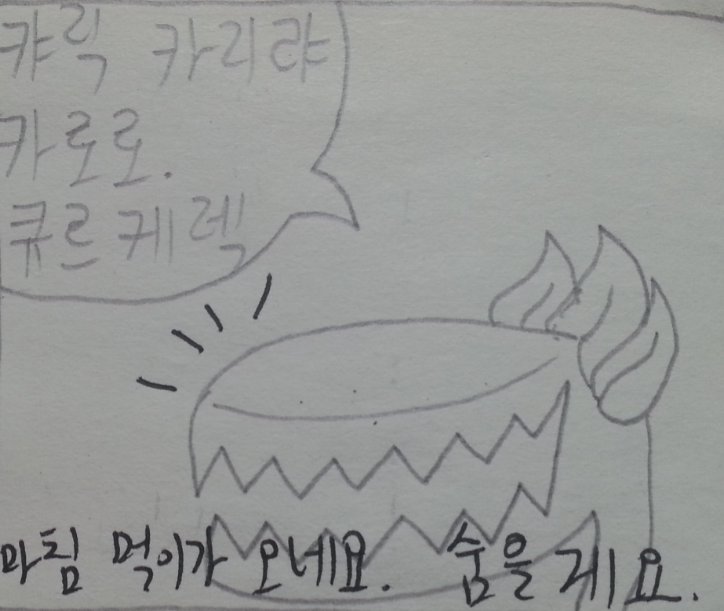 캬릭 카리랴
카로로.
큐르 케렉
마침 먹이가 오네요. 숨을 게요.